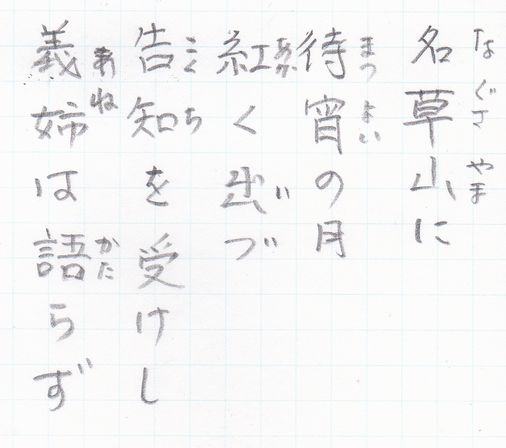 名草山に
なぐさやま
待宵の月
まつよい
紅く出づ
あかい
告知を受けし
こくち
義姉は語らず
あねかた